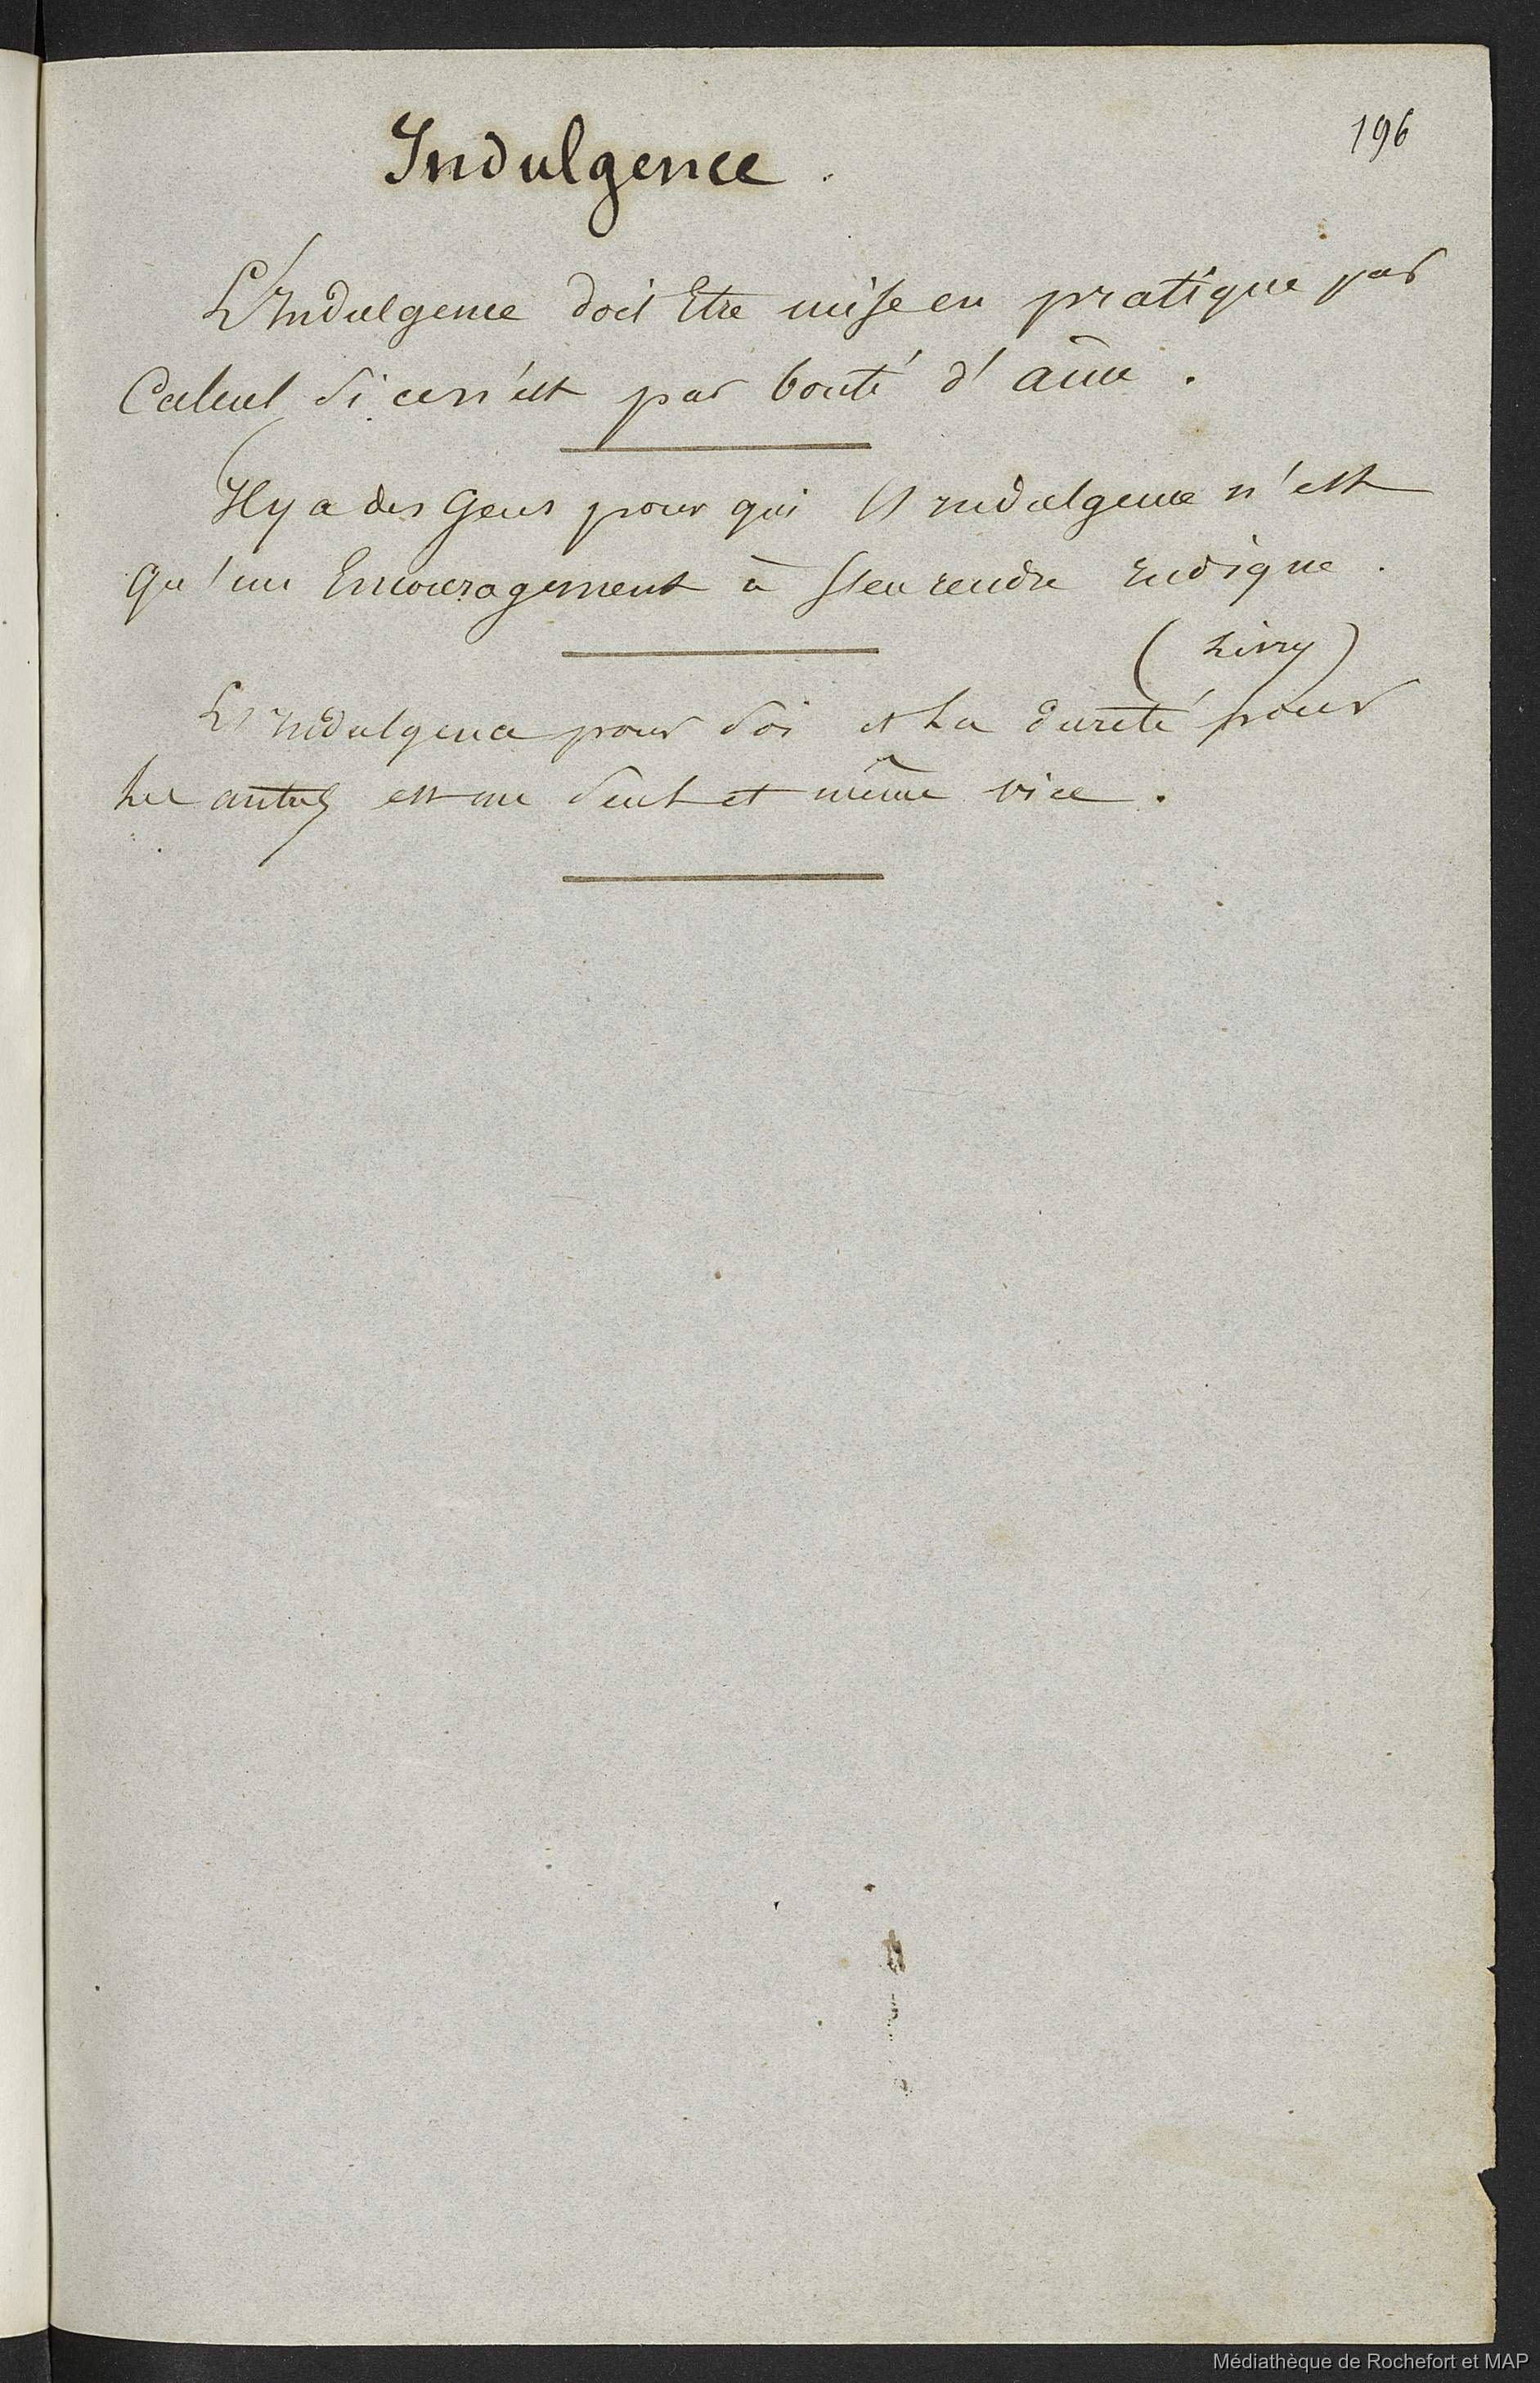 196
Indulgence.
L'Indulgence doit Etre mise en pratique par
Calcul Si ce n'est par bonté d'âme.
Il y a des Gens pour qui l'indulgence n'est
qu'un Encouragement à s'en rendre indigne.
(Livry)
L'indulgence pour Soi et La dureté pour
Les autres est un Seul et même vice.
Médiathèque de Rochefort et MAP